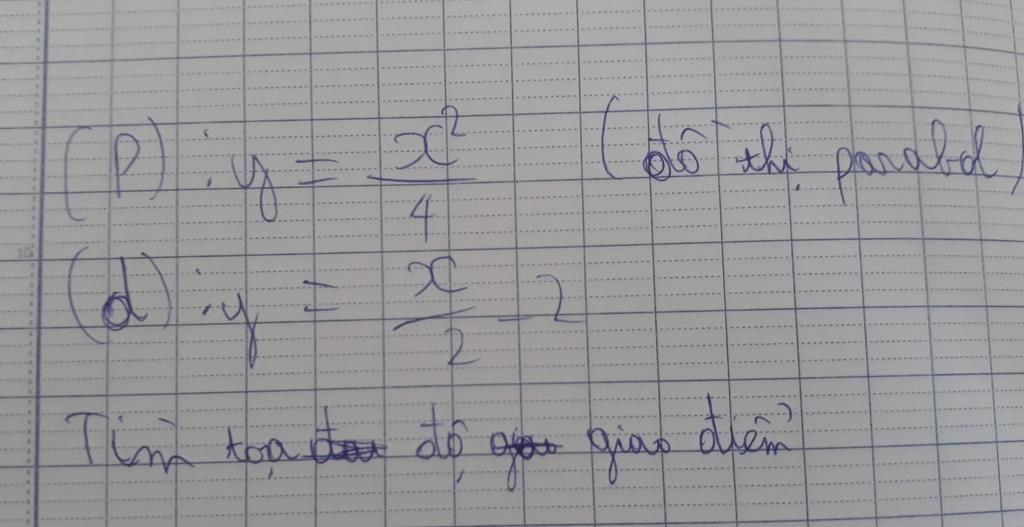 (P) : y = x²/4 (đồ thị parabol)
(d) : y = x/2 - 2
Tìm toạ độ giao điểm